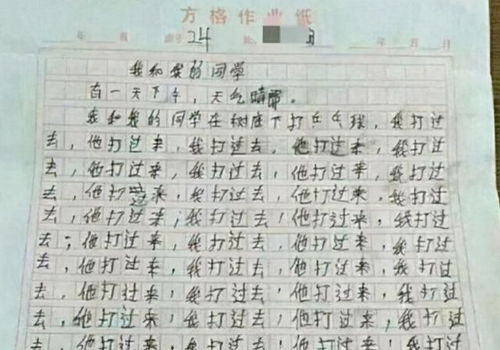 方格作业纸
年 班 座号 24 姓 年 月 日
我和我的同学
有一天下午，天气晴。
我和我的同学在树底下打乒乓球，我打过
去，他打过来，我打过去，他打过来，我打过
去，他打过来，我打过去，他打过来，我打过
去，他打过来，我打过去，他打过来，我打过
去，他打过来，我打过去，他打过来，我打过
去，他打过来，我打过去，他打过来，我打过
去，他打过来，我打过去，他打过来，我打过
去，他打过来，我打过去，他打过来，我打过
去，他打过来，我打过去，他打过来，我打过
去，他打过来，我打过去，他打过来，我打